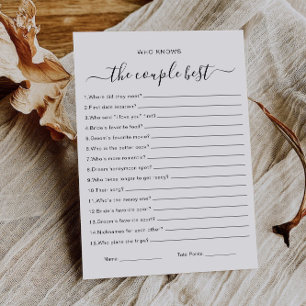 WHO KNOWS
the couple best
1. Where did they meet?
2. First date location?
3. Who said "I love you" first?
4. Bride's favorite food?
5. Groom's favorite movie?
6. Who is the better cook?
7. Who's more romantic?
8. Dream honeymoon spot?
9. Who takes longer to get ready?
10. Their song?
11. Who's the messy one?
12. Bride's favorite sport?
13. Groom's favorite sport?
14. Nicknames for each other?
15. Who plans the trips?
Name: Total Points: